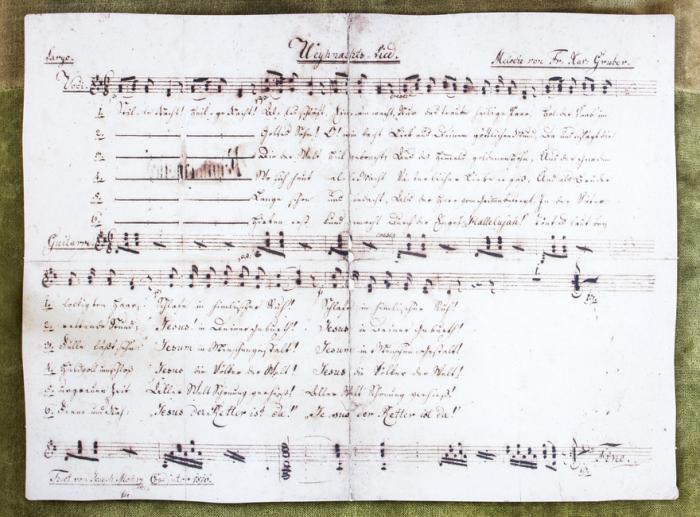 Weyhnachts-Lied.
Largo. Melodie von Fr. Xav. Gruber.
Voci.
1. Stille Nacht! Heilige Nacht! Alles schläft, Einsam wacht Nur das traute heilige Paar. Holder Knab' im
2. Gottes Sohn! O! wie lacht Lieb' aus deinem göttlichen Mund, Da uns schlägt die
3. Die der Welt Heil gebracht Aus des Himmels goldenen Höhn, Aus der Gnaden
4. Wo sich heut alle Macht Väterlicher Liebe ergoß, Und als Bruder
5. Lange schon uns bedacht, Als der Herr vom Grimme befreyt In der Väter
6. Hirten erst kund gemacht Durch der Engel Hallelujah! Tönt es laut bey
Guitarre.
1. lockigten Haar; Schlafe in himmlischer Ruh! Schlafe in himmlischer Ruh!
2. rettende Stund; Jesus in deiner Geburt! Jesus in deiner Geburt!
3. Fülle läßt sehn: Jesum in Menschengestalt! Jesum in Menschengestalt!
4. Huldvoll umschloß Jesus die Völker der Welt! Jesus die Völker der Welt!
5. urgrauer Zeit Aller Welt Schonung verhieß! Aller Welt Schonung verhieß!
6. Ferne und Nah: "Jesus der Retter ist da!" "Jesus der Retter ist da!"
Fine.
Text von Joseph Mohr Coadjutor 1816.